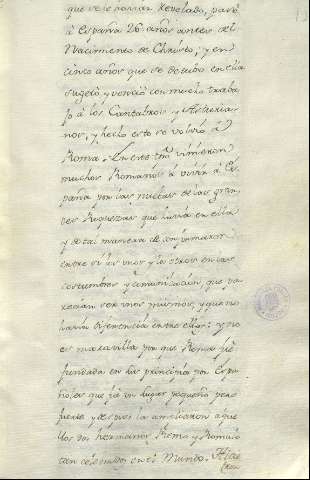 que se le havian Revelado, pasó
à España 26 años antes del
Nacimiento de Christo, y en
cinco años que se detubo en ella
sugetó, y venció con mucho traba
jo à los Cantabros y Asturia
nos, y hecho esto se volvió à
Roma. En este tpo vinieron
muchos Romanos à vivir à Es
paña por las noticias de las gran
des Riquezas que havia en ella
y de tal manera se conformaron
entre si los unos y los otros en las
costumbres y comunicacion, que pa
recian ser unos mismos, y que no
havia diferencia entre ellos: y no
es maravilla por que Roma fue
fundada en sus principios por Espa
ñoles que fue un lugar pequeño pero
fuerte, y despues la ampliaron aque
llos dos hermanos Remo y Romulo
tan celebrados en el Mundo.